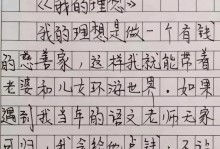 《我的理想》
我的理想是做一个有钱
的慈善家，这样我就能带着
老婆和儿女环游世界。如果
遇到我当年的语文老师无家
可归，我会给他点钱，不说